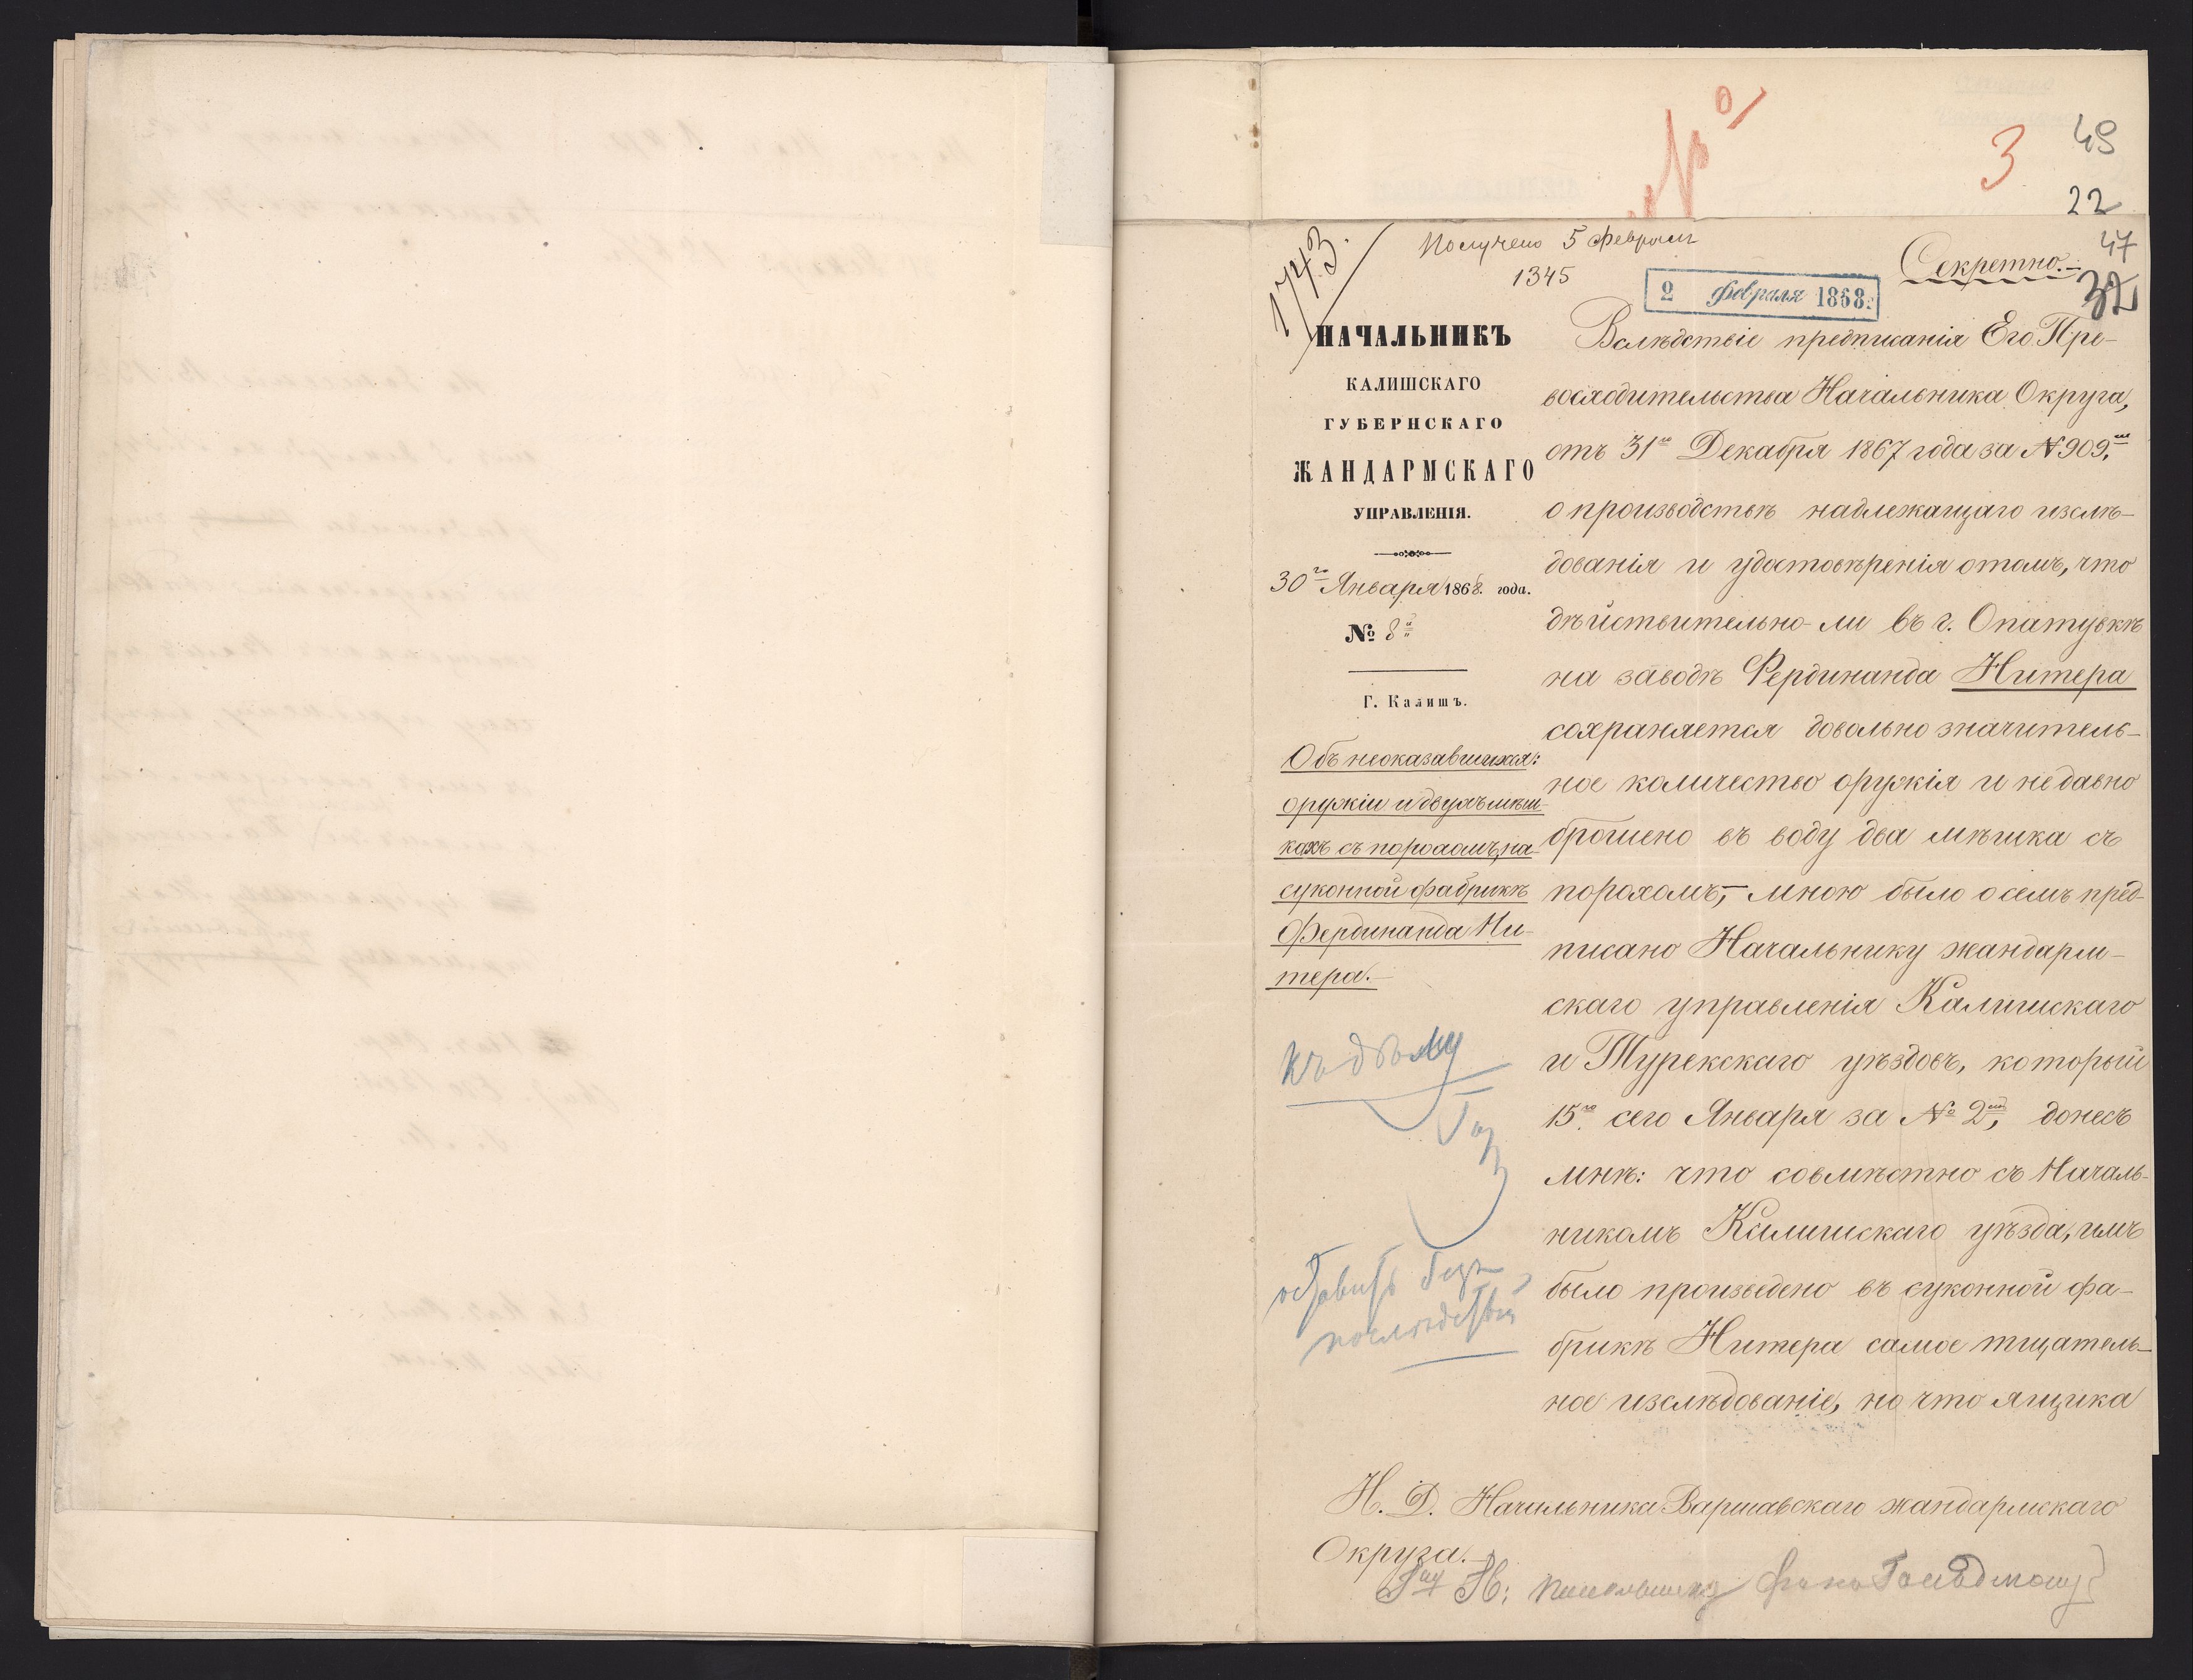 №
3
49
22
1743.
Получено 5 февраля
1345
2 февраля 1868 г.
Секретно.
47
32
НАЧАЛЬНИКЪ
КАЛИШСКАГО
ГУБЕРНСКАГО
ЖАНДАРМСКАГО
УПРАВЛЕНІЯ.
30го Января 1868. года.
№ 8й
Г. Калишъ.
Объ неоказавшихся:
оружіи и двухъ мѣш-
кахъ съ порохомъ, на
суконной фабрикѣ
Фердинанда Ни-
тера.
Къ дѣлу
оставить безъ
послѣдствій
Вслѣдствіе предписанія Его Пре-
восходительства Начальника Округа,
отъ 31го Декабря 1867 года за № 909,
о производствѣ надлежащаго изслѣ-
дованія и удостовѣренія отомъ, что
дѣйствительно-ли въ г. Опатувкѣ
на заводѣ Фердинанда Нитера
сохраняется довольно значитель-
ное количество оружія и недавно
брошено въ воду два мѣшка съ
порохомъ, – мною было о семъ пред-
писано Начальнику жандарм-
скаго управленія Калишскаго
и Турекскаго уѣздовъ, который
15го сего Января за № 2мъ, донесъ
мнѣ: что совмѣстно съ Началь-
никомъ Калишскаго уѣзда, имъ
было произведено въ суконной фа-
брикѣ Нитера самое тщатель-
ное изслѣдованіе, но что ящика
И. Д. Начальника Варшавскаго жандармскаго
Округа.